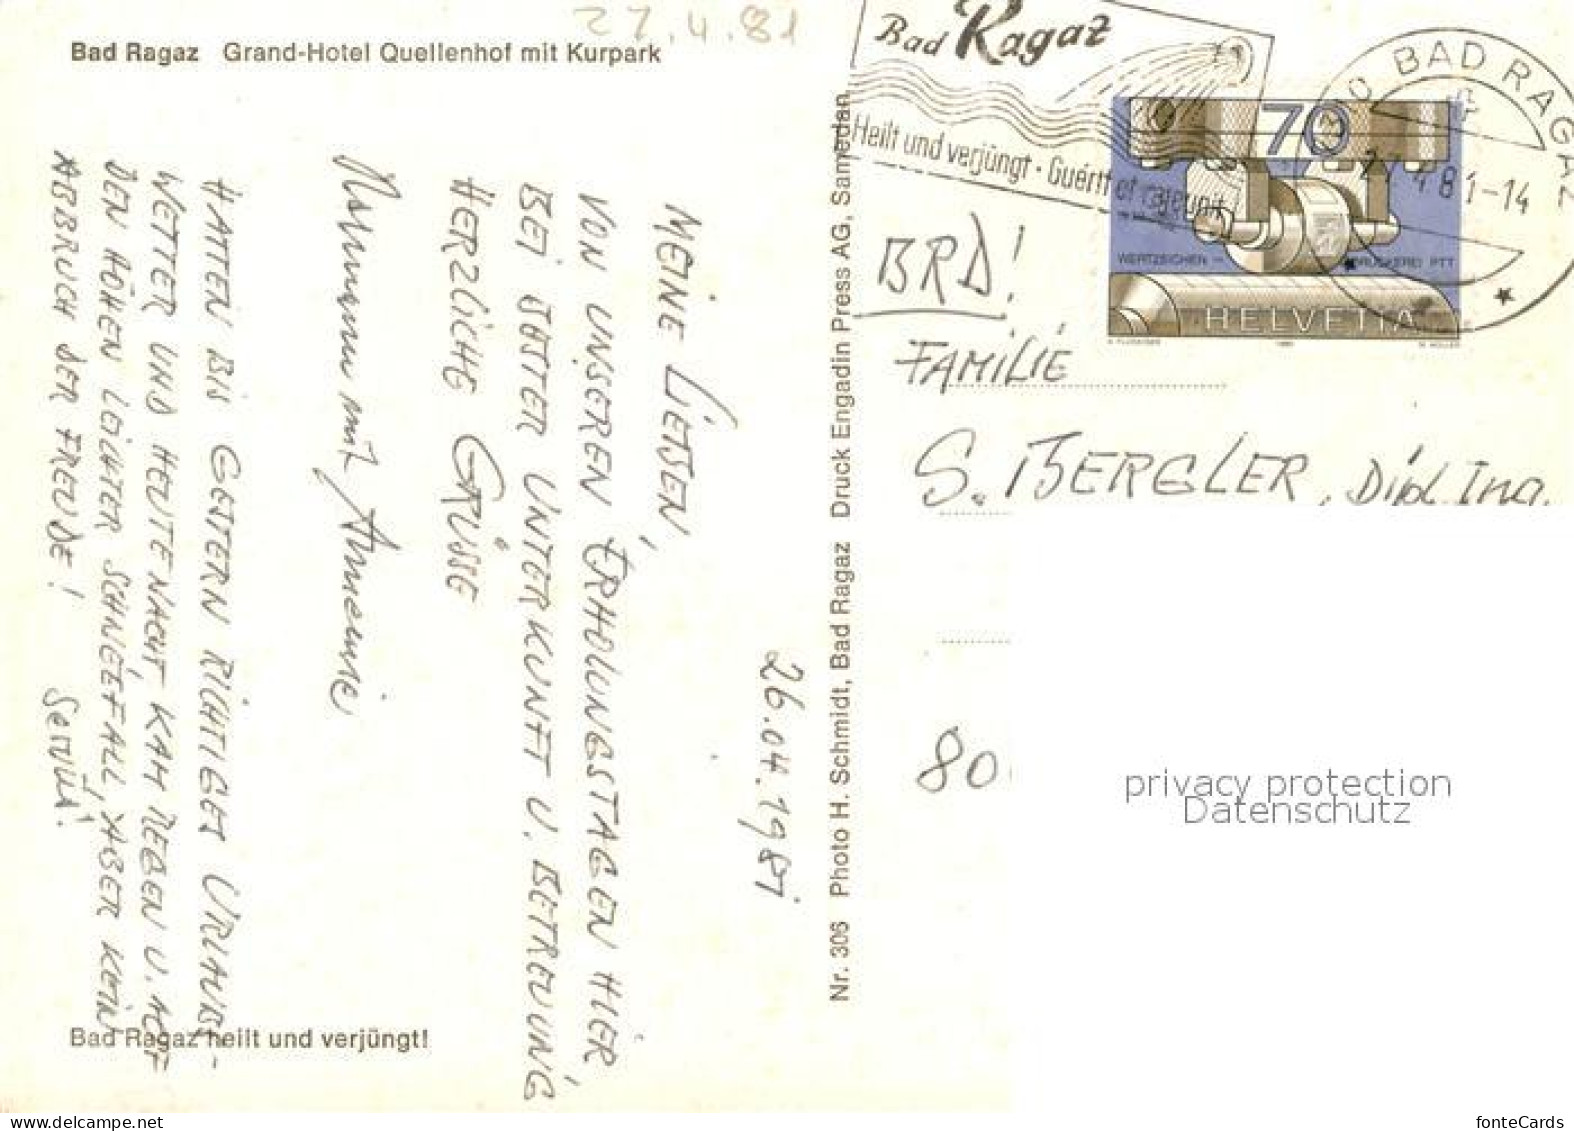 27.4.81
Bad Ragaz Grand-Hotel Quellenhof mit Kurpark
26.04.1981
MEINE LIEBEN,
VON UNSEREN ERHOLUNGSTAGEN HIER,
BEI BESTER UNTERKUNFT U. BETREUUNG,
HERZLICHE GRÜSSE
mit Annemie
HATTEN BIS GESTERN RICHTIGES URLAUBS-
WETTER UND HEUTE NACHT KAM REGEN U. AUF
DEN HÖHEN LEICHTER SCHNEEFALL, ABER KEIN
ABBRUCH DER FREUDE! Servus!
Bad Ragaz heilt und verjüngt!
Nr. 306 Photo H. Schmidt, Bad Ragaz Druck Engadin Press AG, Samedan
Bad Ragaz
Heilt und verjüngt · Guérit et rajeunit!
BAD RAGAZ
27.4.81-14
70
WERTZEICHEN DRUCKEREI PTT
HELVETIA
BRD!
FAMILIE
S. BERGLER, Dipl. Ing.
80
privacy protection
Datenschutz
www.delcampe.net
fonteCards